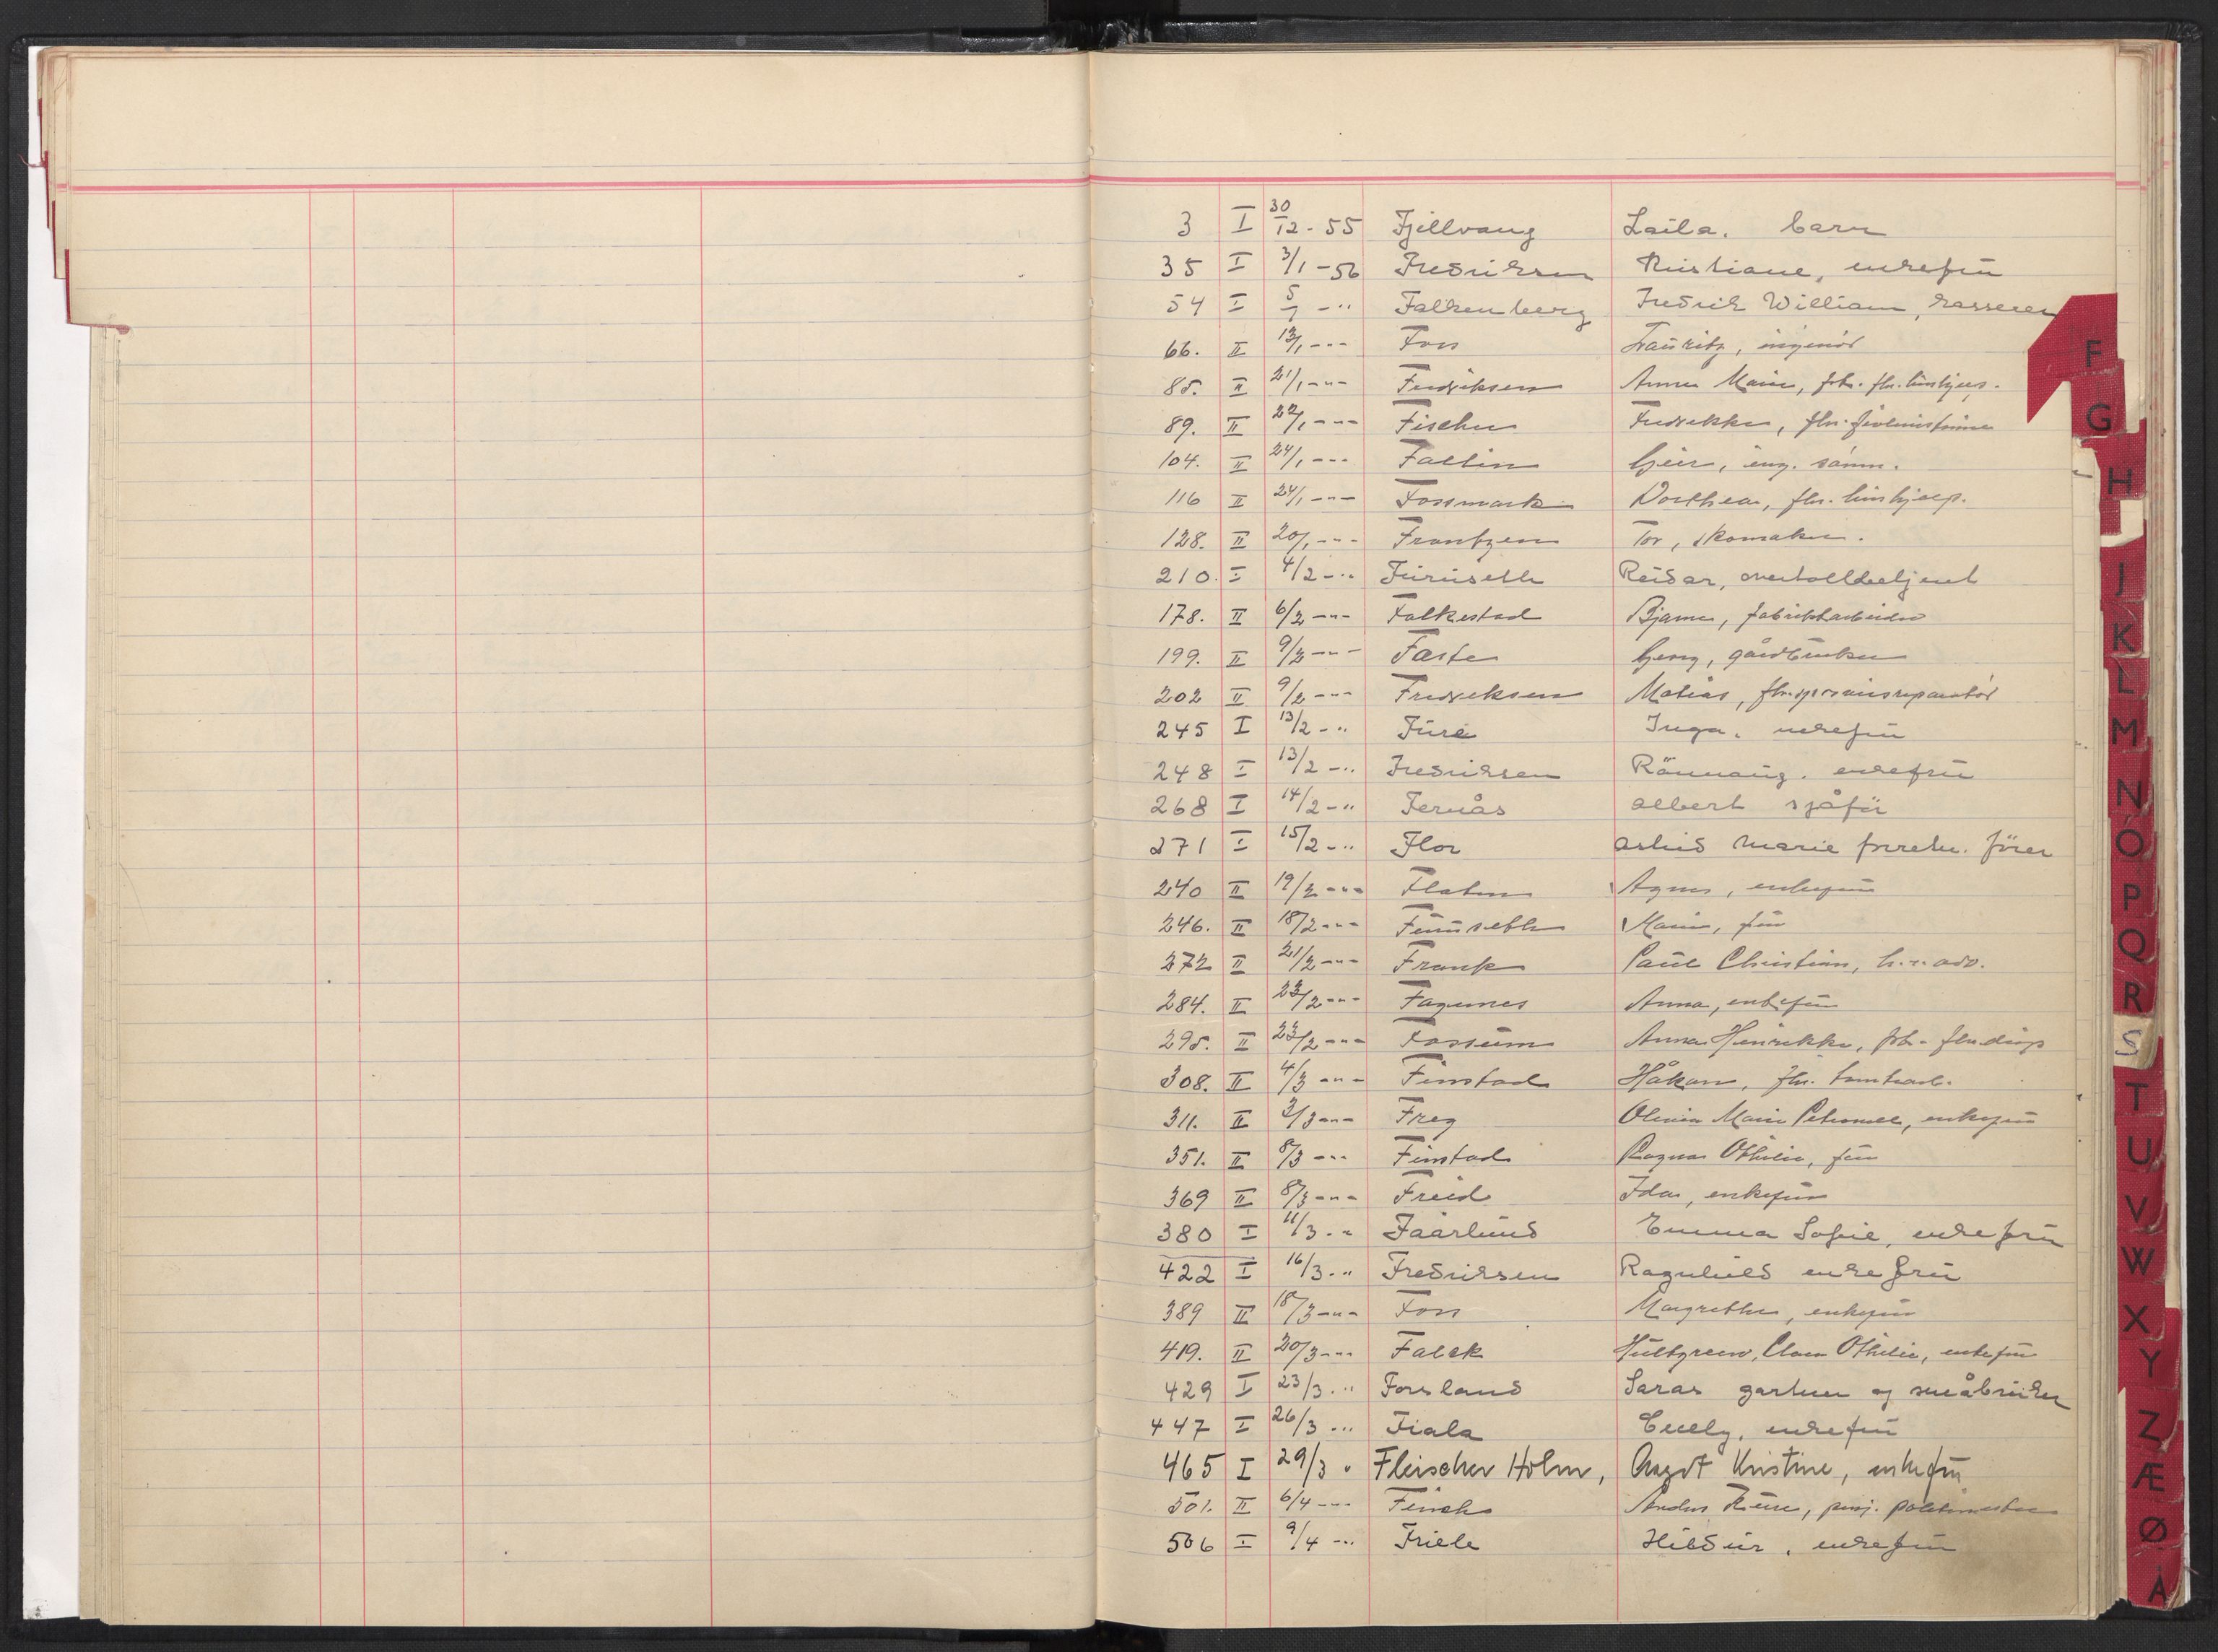 3 I 30/12 - 55 Fjellvang Laila. barn
35 I 3/1 - 56 Fredriksen Kristiane, enkefru
54 I 5/1 - " Falkenberg Fredrik William, kasserer
66. II 13/1 - " - Foss Lauritz, ingeniør
85. II 21/1 - " - Fredriksen Anna Marie, fhv.
89. II 22/1 - " - Fischer Fredrikke, fhv.
104. II 24/1 - " - Faltin Geir,
116 II 24/1 - " - Fossmark Dorthea, fhv. hushjelp.
128. II 20/1 - " - Frantzen Tor, skomaker.
210. I 4/2 - " Furuseth Reidar, overtollbetjent
178. II 6/2 - " - Falkestad Bjarne, fabrikkarbeider
199. II 9/2 - " - Faste Georg, gårdbruker
202 II 9/2 - " - Fredriksen Matias, fhv.
245 I 13/2 - " Fure Inga. enkefru
248 I 13/2 - " Fredriksen Rönnaug. enkefru
268 I 14/2 - " Fernås Albert sjåför
271 I 15/2 - " Flor Astrid Marie forretn. förer
240 II 19/2 - " - Flaten Agnes, enkefru
246. II 18/2 - " - Furuseth Marie, fru
272 II 21/2 - " - Frank Paul Christian, h.r. adv.
284. II 23/2 - " - Fagernes Anna, enkefru
295. II 23/2 - " - Fossum Anna Henrikke,
308. II 4/3 - " - Finstad Håkon, fhv. tomtearb.
311. II 3/3 - " - Frey Olivia Marie Petronelle, enkefru
351. II 8/3 - " - Finstad Ragna Othilie, fru
369 II 8/3 - " - Freid Ida, enkefru
380 I 11/3 - " Faarlund Emma Sofie, enkefru
422 I 16/3 - " Fredriksen Ragnhild enkefru
389 II 18/3 - " - Foss Margrethe, enkefru
419. II 20/3 - " - Falck Hultgreen, Clara Othilie, enkefru
429 I 23/3 - " Forsland Saras gartner og småbruker
447 I 26/3 - " Fiala Emely, enkefru
465 I 29/3 " Fleischer Holm, Aagot Kristine, enkefru
501. II 6/4 - " - Finck Anders pensj. politimester
506 I 9/4 - " Friele Hildur. enkefru
F
G
H
J
K
L
M
N
O
P
Q
R
S
T
U
V
W
X
Y
Z
Æ
Ø
Å